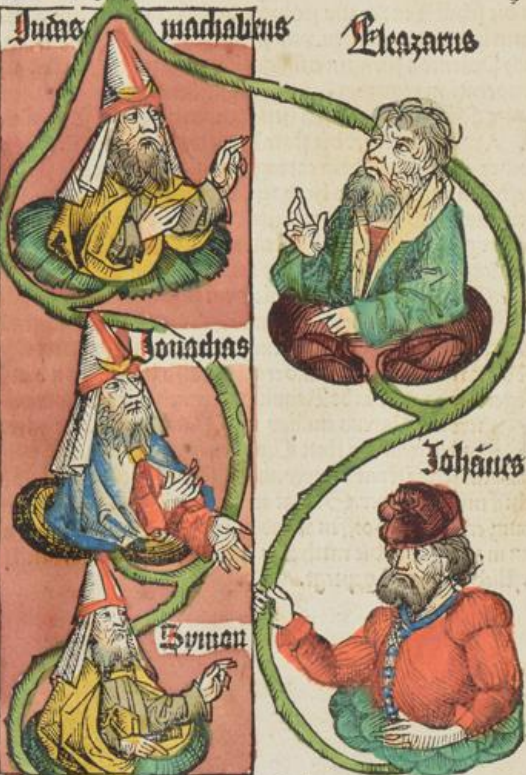 Judas machabeus
Eleazarus
Jonathas
Johānes
Symon